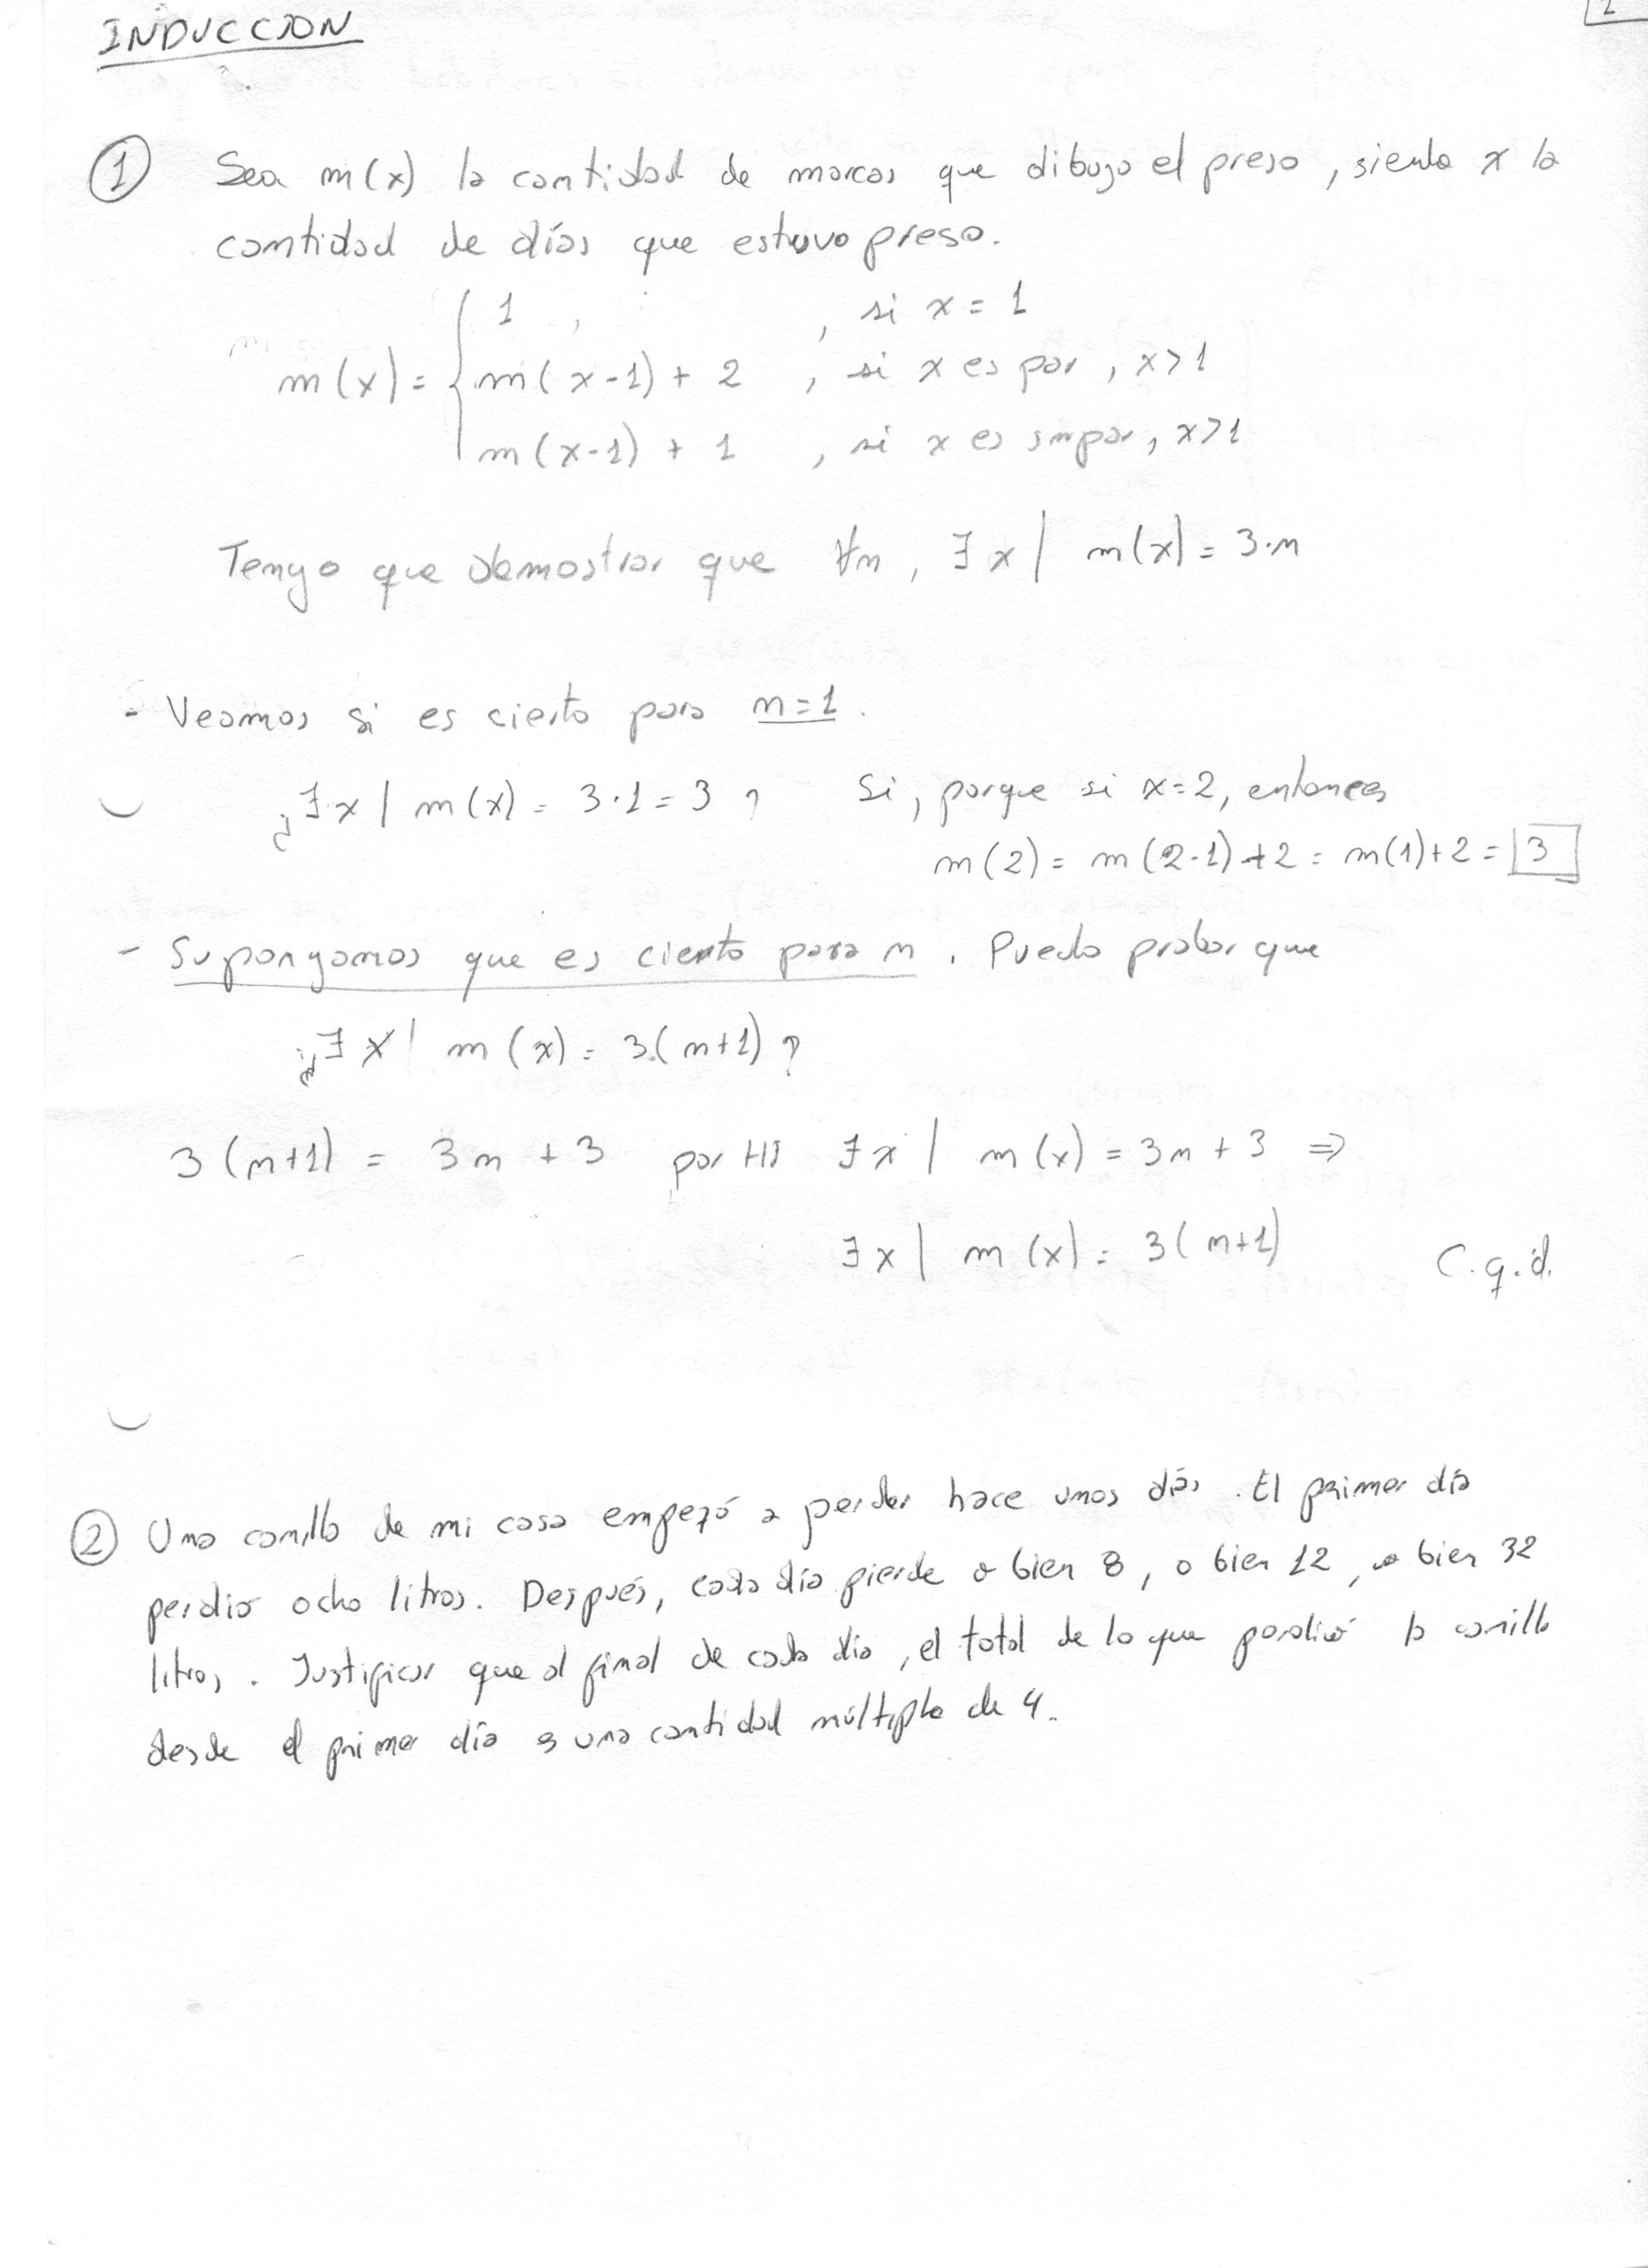 INDUCCION
1 Sea m(x) la cantidad de marcas que dibujo el preso, siendo x la
cantidad de días que estuvo preso.
m(x) = { 1 , si x = 1
m(x-1) + 2 , si x es par, x>1
m(x-1) + 1 , si x es impar, x>1
Tengo que demostrar que ∀n, ∃x | m(x) = 3·n
- Veamos si es cierto para n=1.
¿∃x | m(x) = 3·1 = 3 ? Si, porque si x=2, entonces
m(2) = m(2-1)+2 = m(1)+2 = 3
- Supongamos que es cierto para n. Puedo probar que
¿∃x | m(x) = 3.(n+1) ?
3(n+1) = 3n + 3 por HI ∃x | m(x) = 3n + 3 ⇒
∃x | m(x) = 3(n+1) C.q.d.
2 Una canilla de mi casa empezó a perder hace unos días. El primer día
perdio ocho litros. Después, cada día pierde o bien 8, o bien 12, o bien 32
litros. Justificar que al final de cada día, el total de lo que perdió la canilla
desde el primer día es una cantidad múltiplo de 4.